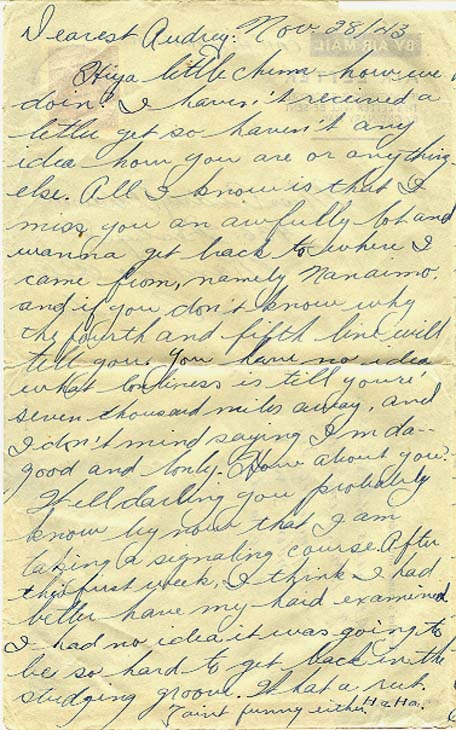 Dearest Audrey: Nov 28/43
BY AIR MAIL
Hiya little chum how we
doin? I haven't received a
letter yet so haven't any
idea how you are or anything
else. All I know is that I
miss you an awfully lot and
wanna get back to where I
came from, namely Nanaimo.
and if you don't know why
the fourth and fifth line will
tell you. You have no idea
what lonliness is till you're
seven thousand miles away, and
I don't mind saying I'm da--
good and lonly. How about you?
Well darling you probably
know by now that I am
taking a signaling course. After
this first week, I think I had
better have my head examined
I had no idea it was going to
be so hard to get back in the
studying groove. What a rut.
Taint funny either Ha Ha.